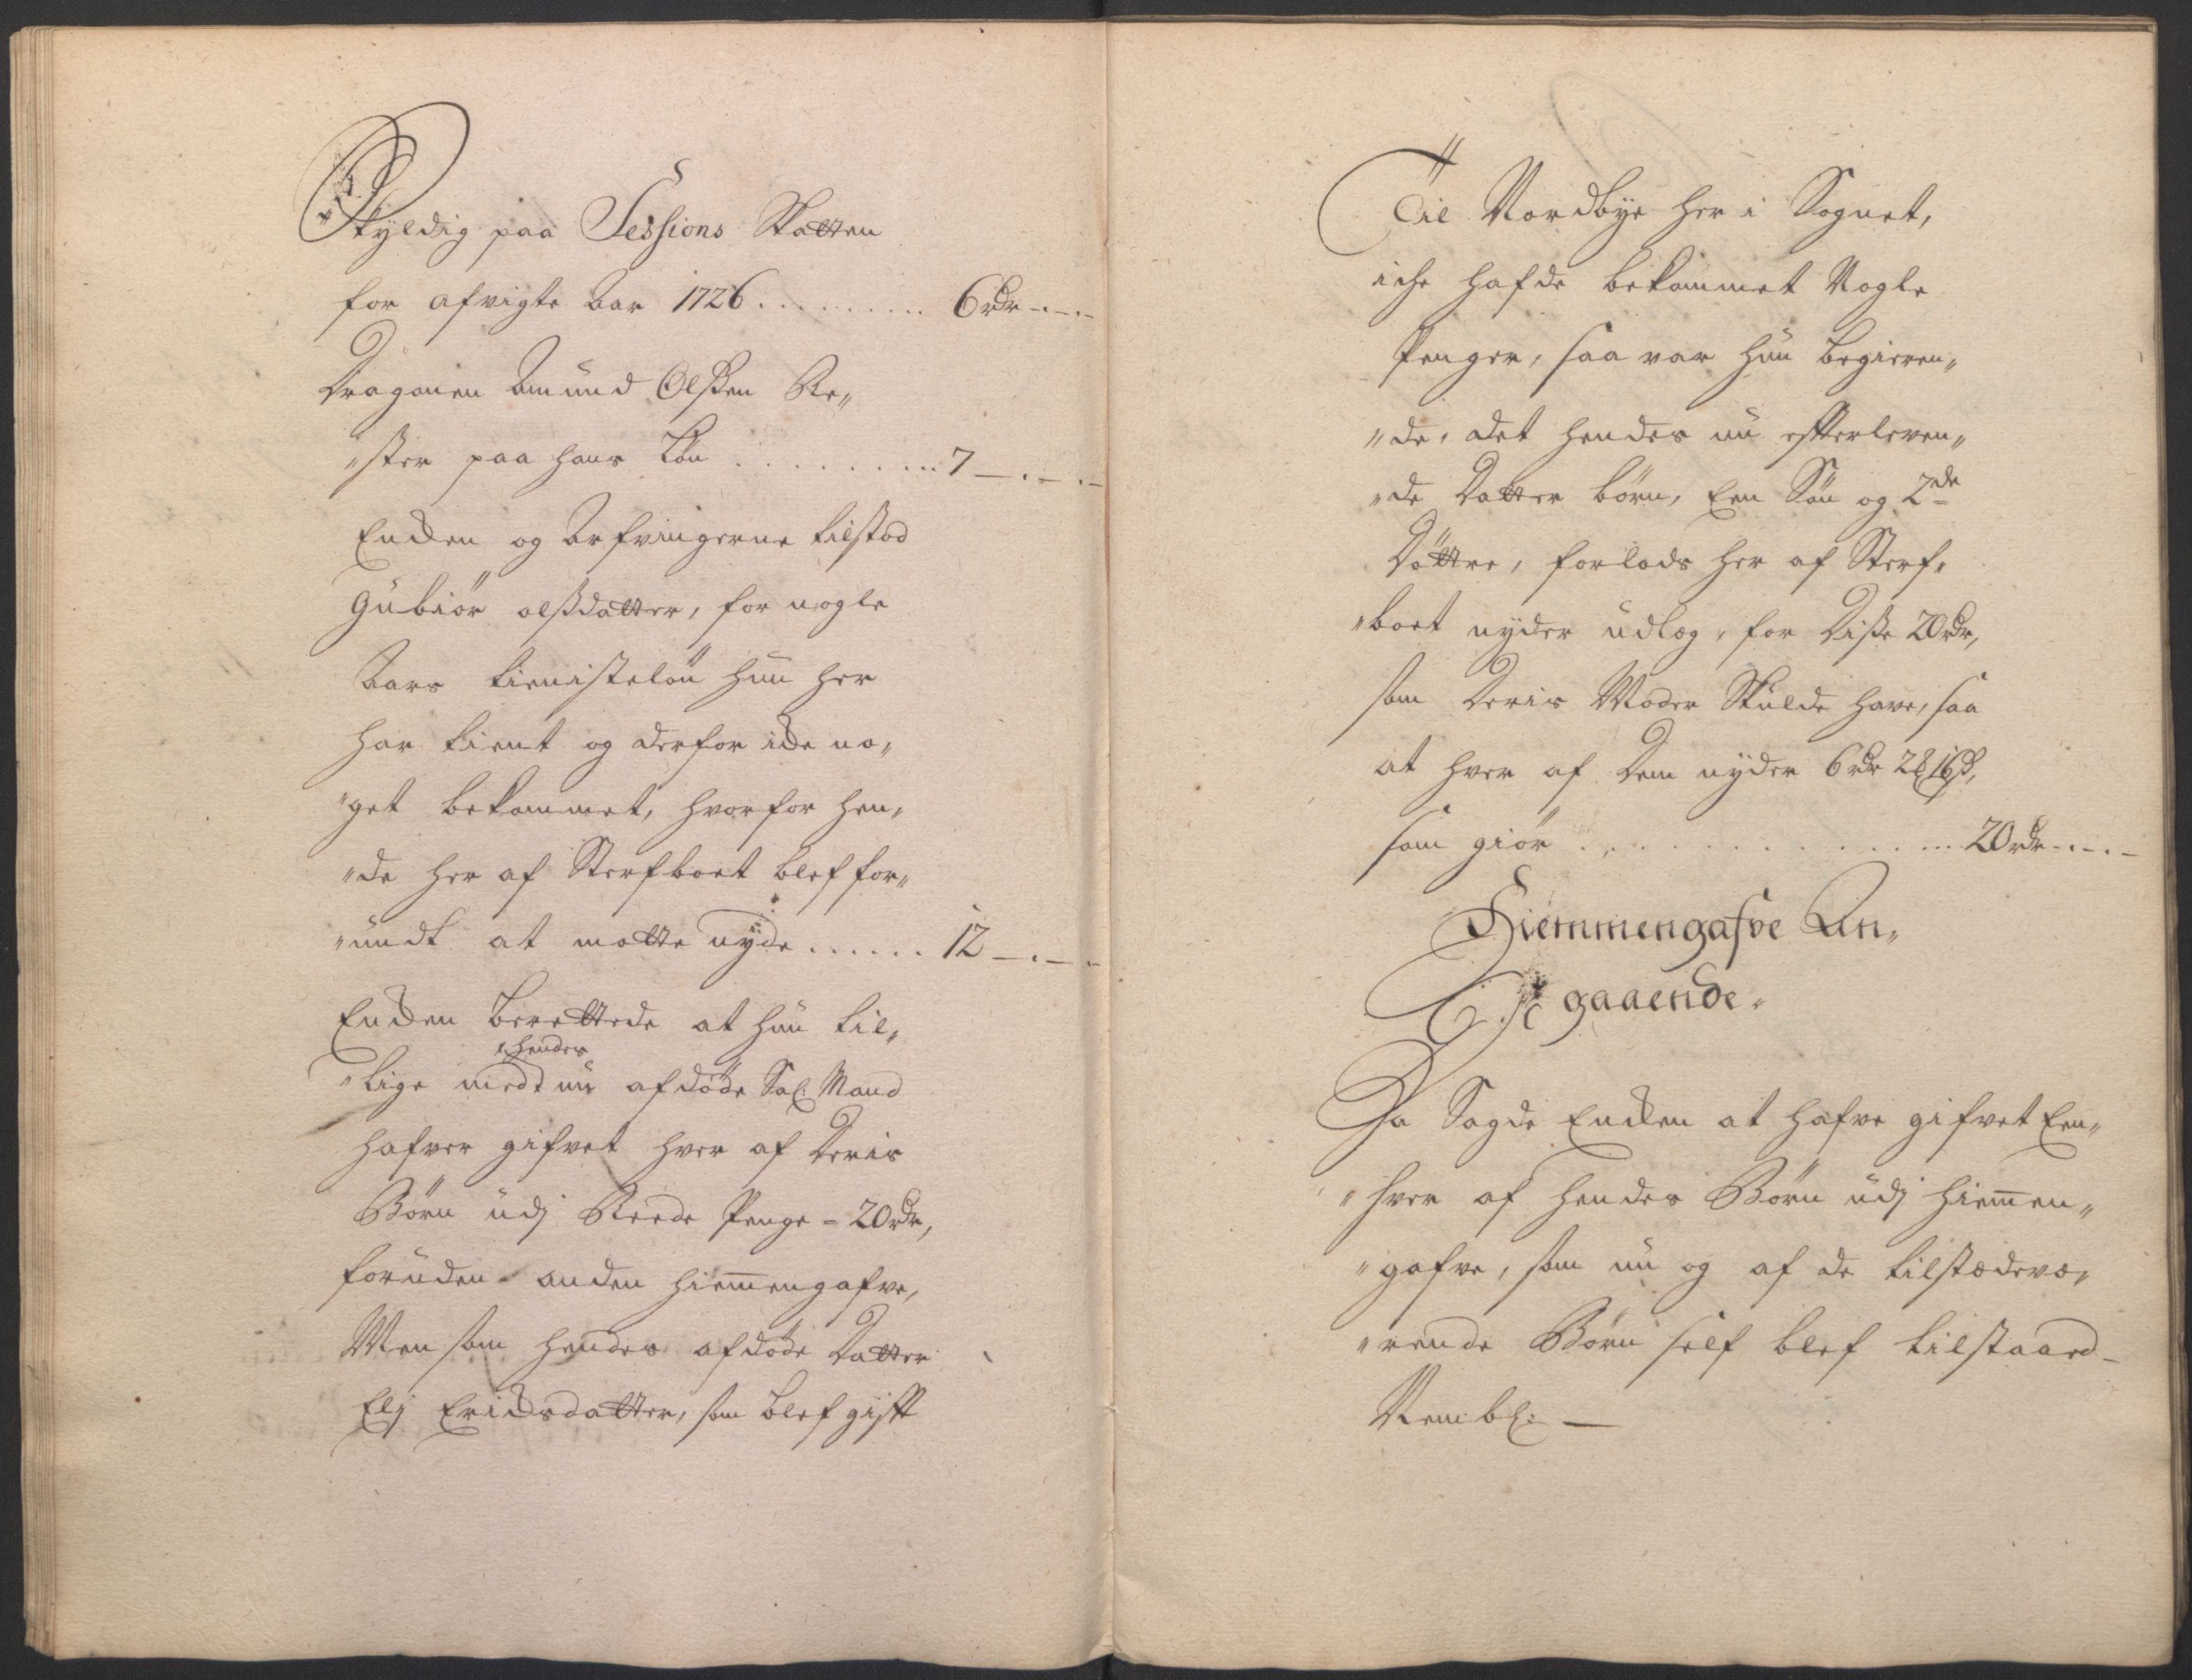 Skyldig paa Sessions Skatten
for afvigte Aar 1726 . . . . . . . . . 6 rdr - . - . -
Dragonen Amund Olssen Re„
„ster paa hans Løn . . . . . . . . . . 7 - . - . -
Enken og Arfvingerne tilstod
Gubiör olssdatter, for nogle
Aars tienisteløn hun her
har tient og derfor icke no„
„get bekommet, hvorfor hen„
„de her af Sterfboet blef for„
„undt at motte nyde . . . . . . 12 - . - . -
Enken berettede at hun til„
hendes
„lige med nu afdøde Sal: Mand
hafver gifvet hver af Deris
Börn udj Reede Penge - 20 rdr,
foruden anden hiemengafve,
Men som hendes afdøde Datter
Elj Ericksdatter, som blef gift
Til Nordbye her i Sognet,
iche hafde bekommet Nogle
Penger, saa var hun begieren„
„de, at hendes nu efterleven„
„de Datter børn, Een Søn og 2de
Döttre, forlods her af Sterf„
„boet nyder udlæg, for Disse 20 rdr,
som Deris Moder Skulde have, saa
at hver af Dem nyder 6 rdr 2 ₰ 16 ß,
som giör . . . . . . . . . . . . . . 20 rdr - . - . -
Hiemmengafve An„
gaaende.
Da Sagde Enken at hafve gifvet Een„
„hver af hendes Börn udj hiemen„
„gafve, som nu og af de tilstædevæ„
„rende Börn self blef tilstaaed -
Nembl: -